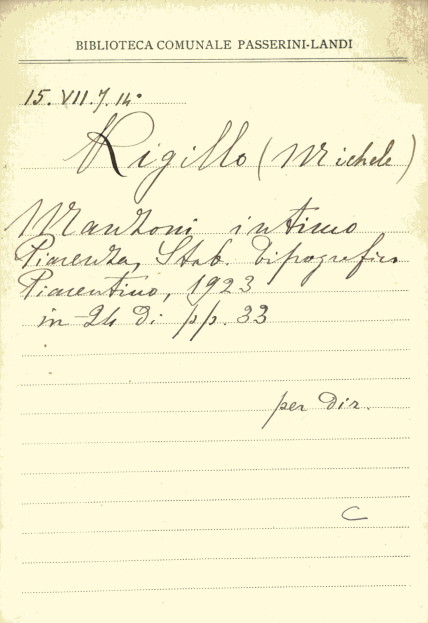 BIBLIOTECA COMUNALE PASSERINI-LANDI
15. VII. 7. 14°
Rigillo (Michele)
Manzoni intimo
Piacenza, Stab. Tipografico
Piacentino, 1923
in 24 di pp. 33
per Dir.
C